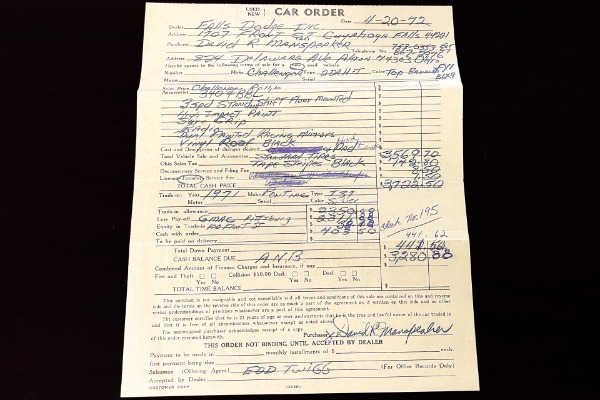 USED
NEW CAR ORDER
Dealer Falls Dodge Inc. Date 4-20-72
Address 1707 Front St Cuyahoga Falls 44221
Purchaser David R. Manspeaker Telephone No.
Address 824 Delaware Ave Akron 44303 Ohio
I hereby agree to the following terms of sale for a used vehicle.
Number Make Challenger Type 2 Dr H.T. Color Top Banana FY1
Motor Serial
Sales Price Challenger Rallye
Accessories 340 4 BBL
3 spd Standard Shift Floor Mounted
Hi Impact Paint
Sure Grip
Radio
Dual Painted Racing mirrors
Vinyl Roof Black
Cost and Description of changes desired Hood
Total Vehicle Sale and Accessories Standard Tires 3569.70
Ohio Sales Tax Tape Stripes Black
Documentary Service and Filing Fee
License Transfer Service Fee
TOTAL CASH PRICE 3723.50
Trade-in: Year 1971 Make Pontiac Type T37
Motor Serial Color Silver
Trade-in allowance $ 2350.00
Less Pay-off GMAC Pittsburg $
Equity in Trade-in 100 Fleet St $
Cash with order $ 403.50
To be paid on delivery $
check no. 195
441.62
Total Down Payment
CASH BALANCE DUE A.N.B $ 3,280.88
Combined Amount of Finance Charges and Insurance, if any
Fire and Theft Collision $50.00 Ded. Ded.
Yes No Yes No Yes No
TOTAL TIME BALANCE $
This contract is not assignable and not cancellable and all terms and conditions of this sale are contained on this and reverse
side and the terms on the reverse side of this order are as much a part of the agreement as if written on this side and no other
verbal understandings or promises whatsoever are a part of this agreement.
The customer certifies that he is 21 years of age or over and warrants that he is the true and lawful owner of the car traded in
and that it is free of all encumbrances whatsoever except as noted above.
The undersigned purchaser acknowledges receipt of a copy
of this order executed herewith. Purchaser David R. Manspeaker
THIS ORDER NOT BINDING UNTIL ACCEPTED BY DEALER
Payment to be made in monthly installments of $ each.
first payment being due
Salesman (Offering Agent) EDD Twigg (For Office Records Only)
Accepted by Dealer
CUSTOMER COPY (OVER)